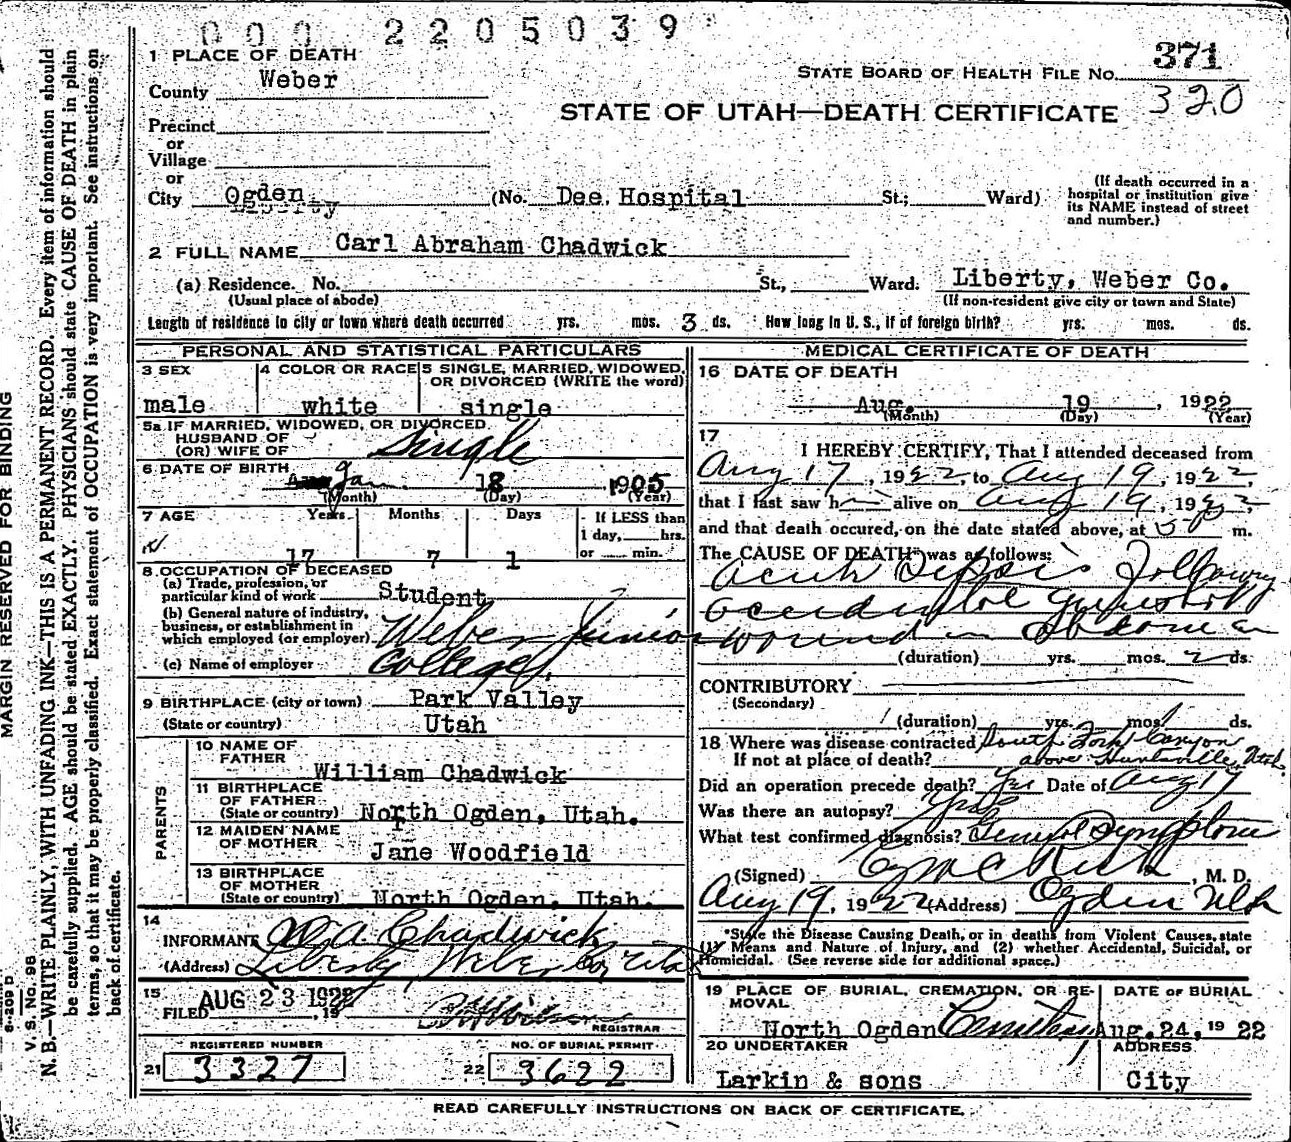 000 2205039
1 PLACE OF DEATH
County Weber
STATE BOARD OF HEALTH FILE No. 371
320
STATE OF UTAH—DEATH CERTIFICATE
Precinct
or
Village
or
City Ogden (No. Dee Hospital St.; Ward)
(If death occurred in a hospital or institution give its NAME instead of street and number.)
2 FULL NAME Carl Abraham Chadwick
(a) Residence. No. St., Ward. Liberty, Weber Co.
(Usual place of abode) (If non-resident give city or town and State)
Length of residence in city or town where death occurred yrs. mos. 3 ds. How long in U. S., if of foreign birth? yrs. mos. ds.
PERSONAL AND STATISTICAL PARTICULARS
3 SEX 4 COLOR OR RACE 5 SINGLE, MARRIED, WIDOWED, OR DIVORCED (WRITE the word)
male white single
5a IF MARRIED, WIDOWED, OR DIVORCED
HUSBAND OF
(OR) WIFE OF Single
6 DATE OF BIRTH Jan. 18 1905
(Month) (Day) (Year)
7 AGE Years Months Days If LESS than
1 day, hrs.
or min.
17 7 1
8 OCCUPATION OF DECEASED
(a) Trade, profession, or
particular kind of work Student
(b) General nature of industry,
business, or establishment in
which employed (or employer) Weber Junior
College
(c) Name of employer
9 BIRTHPLACE (city or town) Park Valley
(State or country) Utah
PARENTS
10 NAME OF
FATHER William Chadwick
11 BIRTHPLACE
OF FATHER
(State or country) North Ogden, Utah.
12 MAIDEN NAME
OF MOTHER Jane Woodfield
13 BIRTHPLACE
OF MOTHER
(State or country) North Ogden, Utah.
14
INFORMANT W. A. Chadwick
(Address) Liberty Weber Co Utah
15
FILED AUG 23 1922, 19
REGISTRAR
REGISTERED NUMBER NO. OF BURIAL PERMIT
21 3327 22 3622
MEDICAL CERTIFICATE OF DEATH
16 DATE OF DEATH
Aug. 19, 1922
(Month) (Day) (Year)
17
I HEREBY CERTIFY, That I attended deceased from
Aug 17, 1922, to Aug 19, 1922,
that I last saw h alive on Aug 19, 1922,
and that death occured, on the date stated above, at m.
The CAUSE OF DEATH* was as follows:
Acute Sepsis following
accidental gunshot
wound in abdomen
(duration) yrs. mos. 2 ds.
CONTRIBUTORY
(Secondary)
(duration) yrs. mos. ds.
18 Where was disease contracted South Fork Canyon
If not at place of death? above Huntsville, Utah.
Did an operation precede death? Yes Date of Aug 17
Was there an autopsy?
What test confirmed diagnosis? General Symptoms
(Signed) , M. D.
Aug 19, 1922 (Address) Ogden Utah
*State the Disease Causing Death, or in deaths from Violent Causes, state
(1) Means and Nature of Injury, and (2) whether Accidental, Suicidal, or
Homicidal. (See reverse side for additional space.)
19 PLACE OF BURIAL, CREMATION, OR REMOVAL DATE OF BURIAL
North Ogden Cemetery Aug. 24, 1922
20 UNDERTAKER ADDRESS
Larkin & sons City
READ CAREFULLY INSTRUCTIONS ON BACK OF CERTIFICATE.
MARGIN RESERVED FOR BINDING
V. S. No. 98
N. B.—WRITE PLAINLY, WITH UNFADING INK—THIS IS A PERMANENT RECORD. Every item of information should
be carefully supplied. AGE should be stated EXACTLY. PHYSICIANS should state CAUSE OF DEATH in plain
terms, so that it may be properly classified. Exact statement of OCCUPATION is very important. See instructions on
back of certificate.